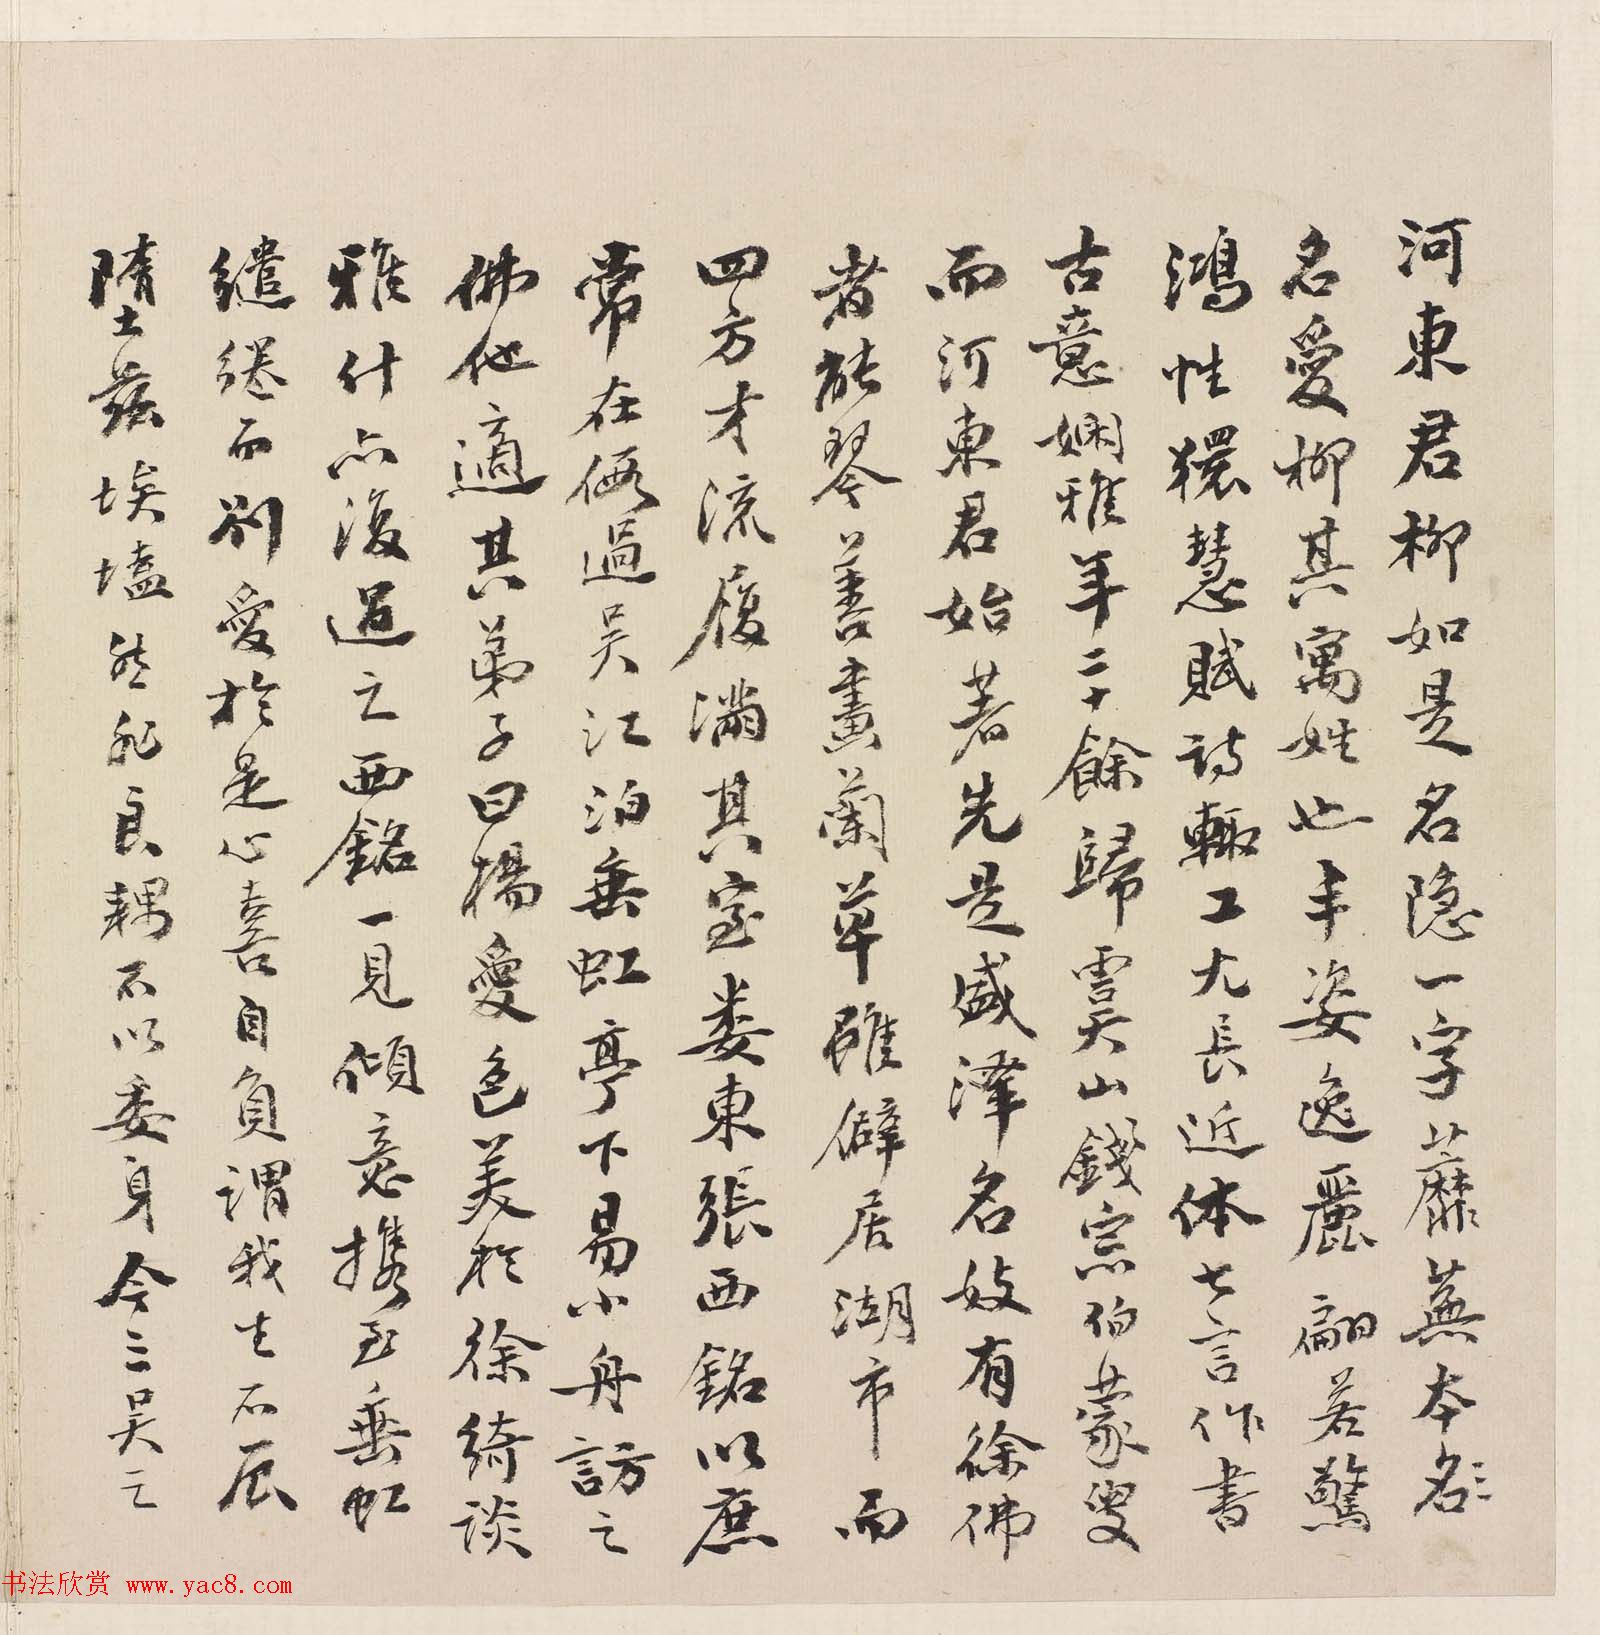 河東君柳如是名隐一字蘼蕪本名〻
名愛柳其寓姓也丰姿逸麗翩若驚
鴻性獧慧賦詩輒工尤長近体七言作書
古意嫻雅年二十餘歸雲天山錢宗伯蒙叟
而河東君始著先是盛澤名妓有徐佛
者能琴善畫蘭草雖僻居湖市而
四方才流履滿其室婁東張西銘以庶
常在假過吴江泊垂虹亭下易小舟訪之
佛他適其弟子曰楊愛色美於徐綺談
雅什亦復過之西銘一見傾意携至垂虹
繾綣而別愛於是心喜自負謂我生不辰
墮兹埃壒然非良耦不以委身今三吴之
书法欣赏 www.yac8.com